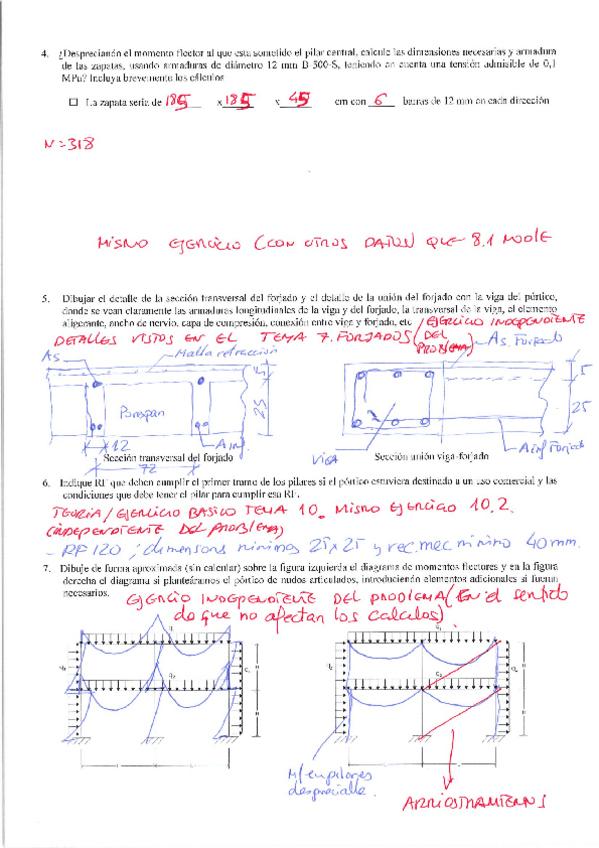 4. ¿Despreciando el momento flector al que esta sometido el pilar central, calcule las dimensiones necesarias y armadura
de las zapatas, usando armaduras de diámetro 12 mm B 500-S, teniendo en cuenta una tensión admisible de 0,1
MPa? Incluya brevemente los cálculos
La zapata sería de 185 x 185 x 45 cm con 6 barras de 12 mm en cada dirección
N=318
MISMO EJERCICIO (CON OTROS DATOS) QUE 8.1
5. Dibujar el detalle de la sección transversal del forjado y el detalle de la unión del forjado con la viga del pórtico,
donde se vean claramente las armaduras longitudinales de la viga y del forjado, la transversal de la viga, el elemento
aligerante, ancho de nervio, capa de compresión, conexión entre viga y forjado, etc / EJERCICIO INDEPENDIENTE
DETALLES VISTOS EN EL TEMA 7. FORJADOS (DEL
PROBLEMA)
As
Malla retracción
As. Forjado
5
25
Porespan
12
A inf
5
25
A inf Forjado
VIGA
Sección transversal del forjado
Sección unión viga-forjado
72
6. Indique RF que deben cumplir el primer tramo de los pilares si el pórtico estuviera destinado a un uso comercial y las
condiciones que debe tener el pilar para cumplir esa RF.
TEORÍA / EJERCICIO BASICO TEMA 10. MISMO EJERCICIO 10.2.
(INDEPENDIENTE DEL PROBLEMA)
- RF 120 ; dimensons mínimos 25x25 y rec.mec mínimo 40mm.
7. Dibuje de forma aproximada (sin calcular) sobre la figura izquierda el diagrama de momentos flectores y en la figura
derecha el diagrama si planteáramos el pórtico de nudos articulados, introduciendo elementos adicionales si fueran
necesarios.
EJERCICIO INDEPENDIENTE DEL PROBLEMA (EN el sentido
de que no afectan los calculos).
M/ en pilares
despreciable.
ARRIOSTRAMIENTOS